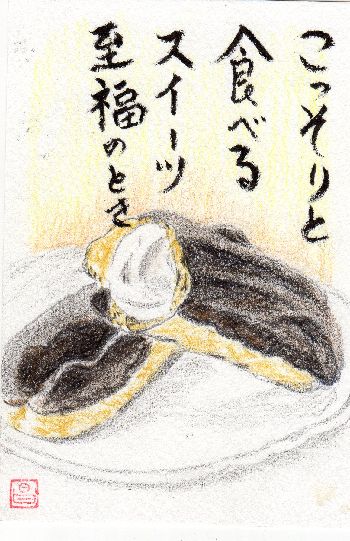 こっそりと
食べる
スイーツ
至福のとき